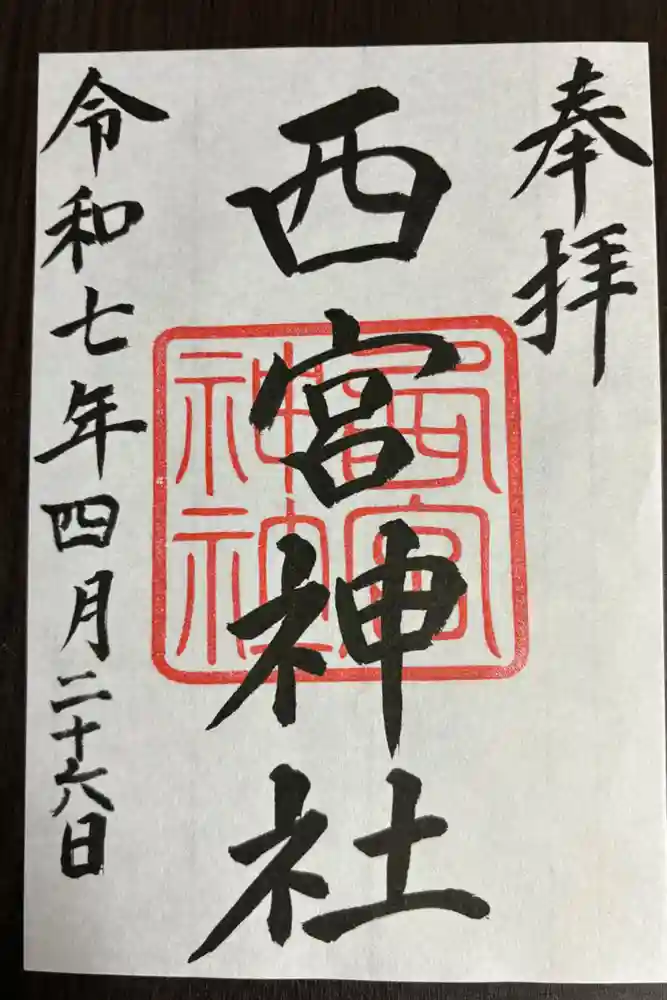 奉拝
西宮神社
西宮
神社
令和七年四月二十六日